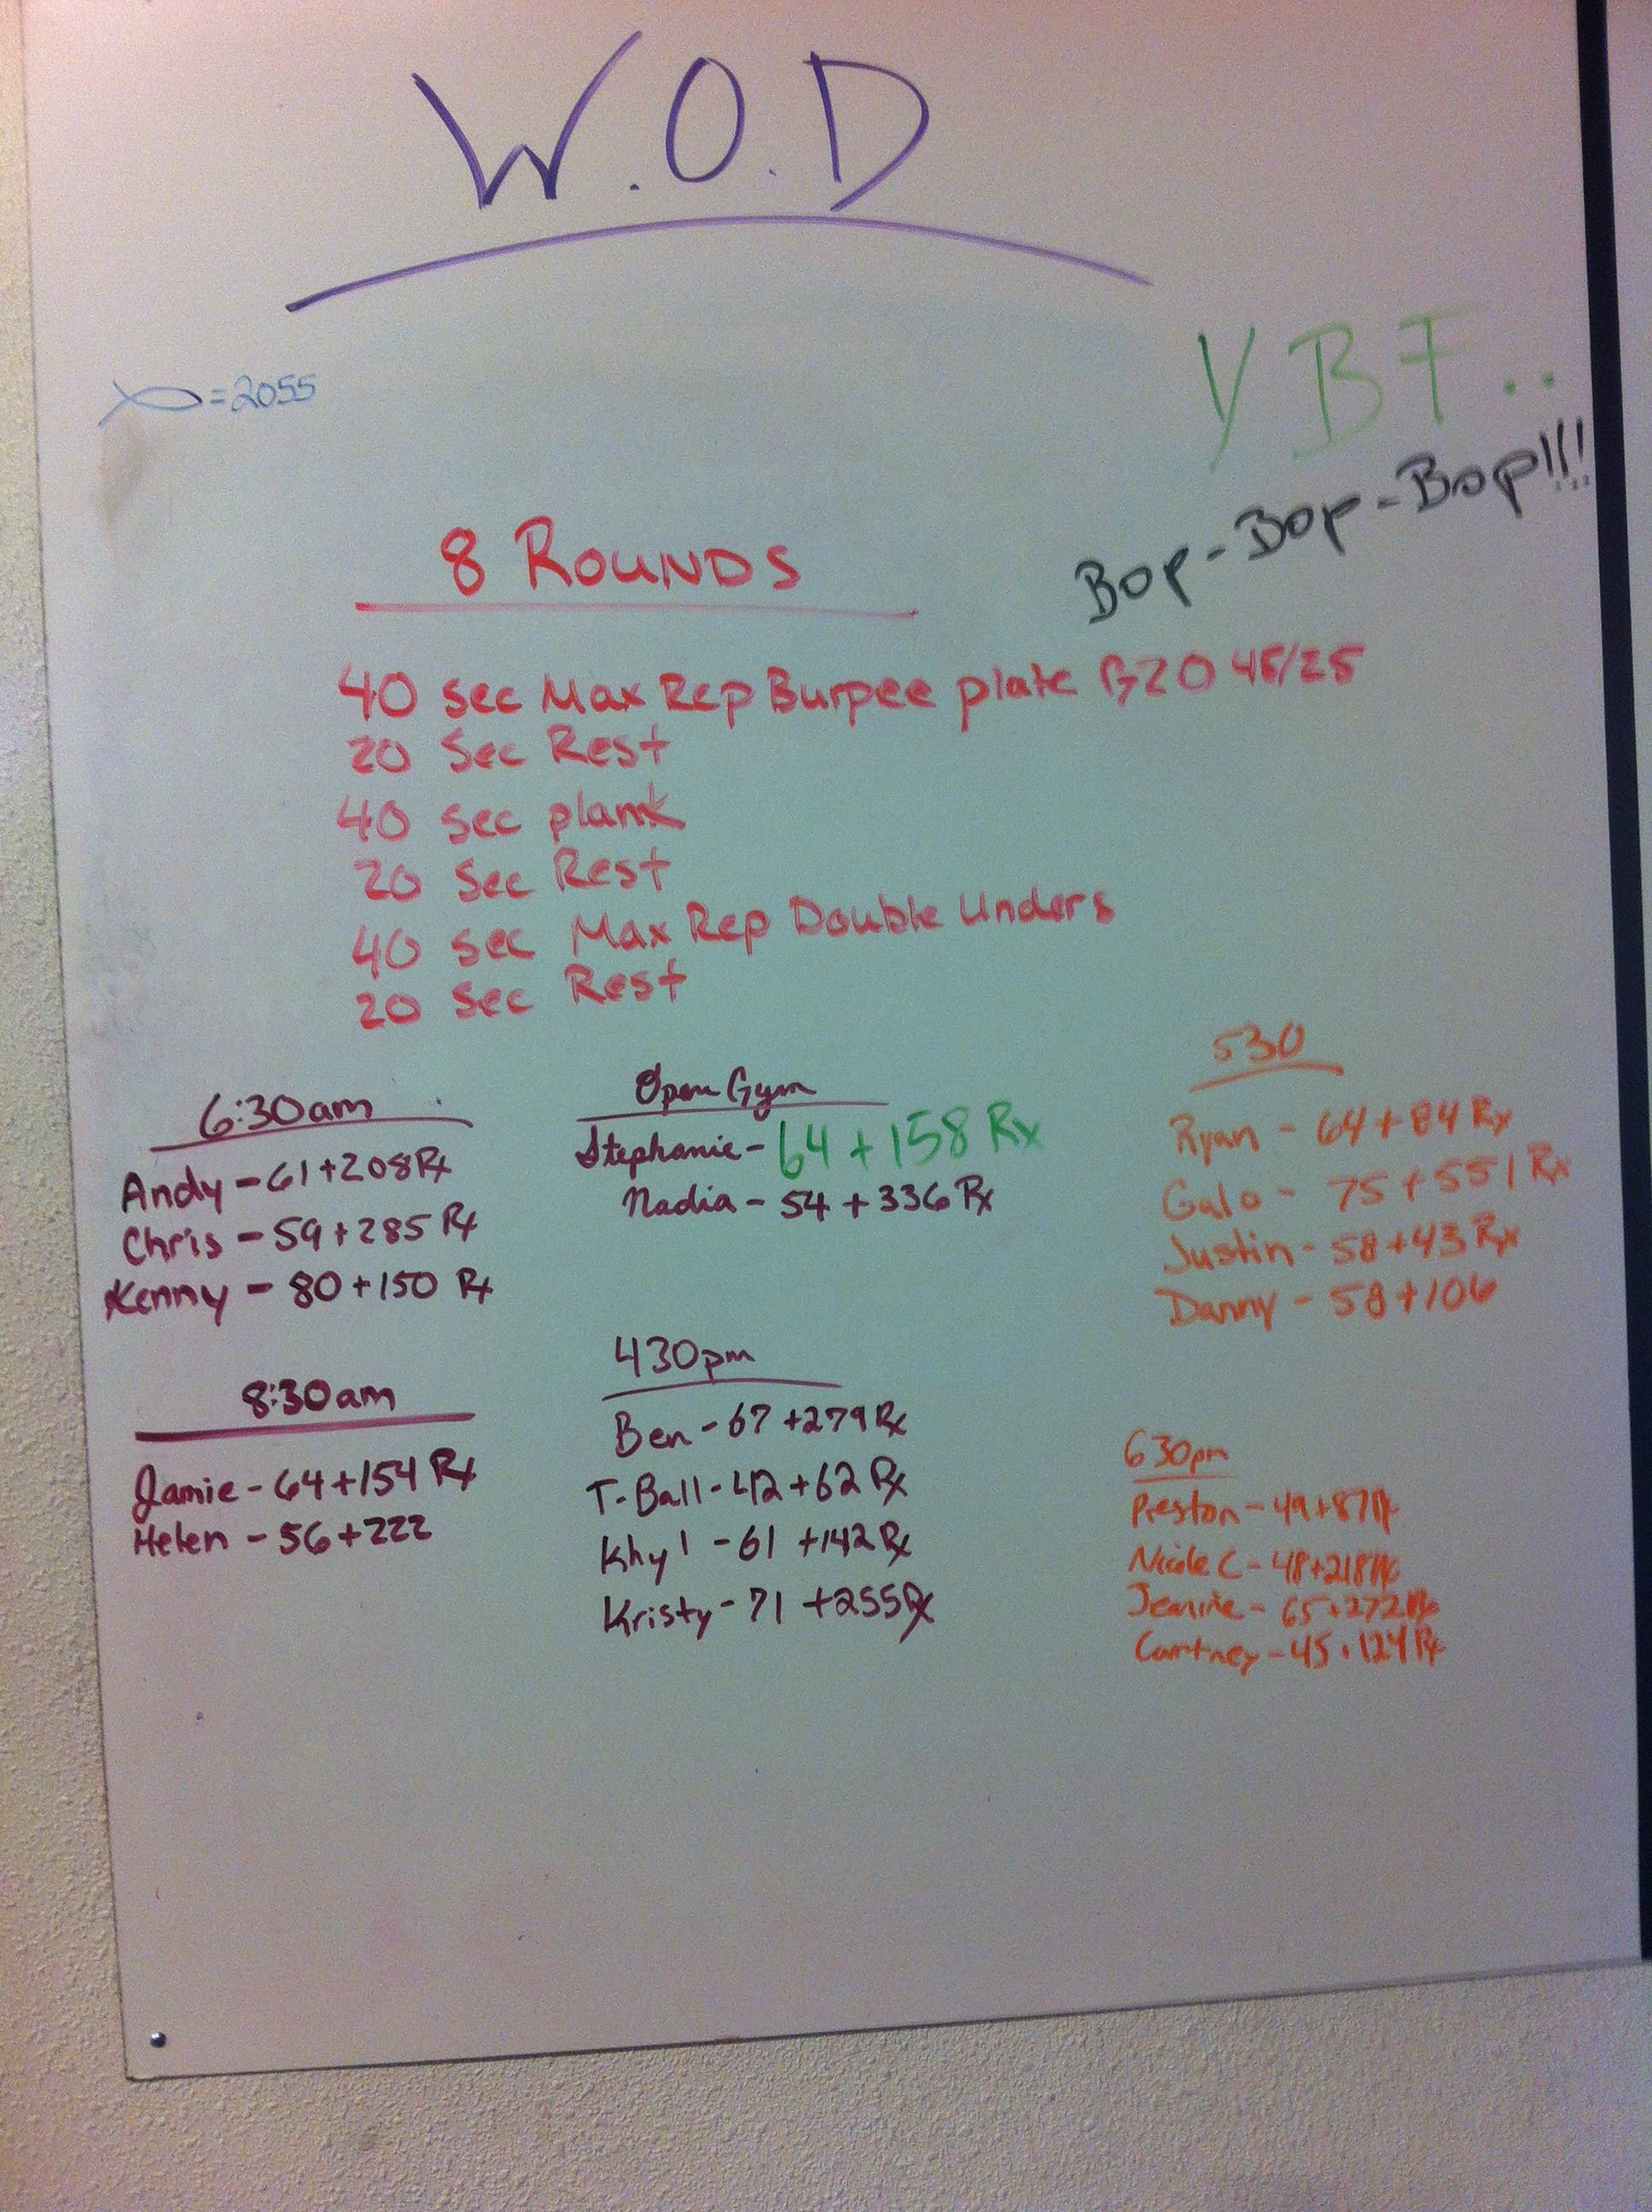 W.O.D
=2055
YBF..
Bop-Bop-Bop!!!
8 ROUNDS
40 Sec Max Rep Burpee plate G2O 45/25
20 Sec Rest
40 Sec plank
20 Sec Rest
40 sec Max Rep Double Unders
20 Sec Rest
6:30am
Andy - 61+208 Rx
Chris - 59+285 Rx
Kenny - 80+150 Rx
8:30am
Jamie - 64+154 Rx
Helen - 56+222
Open Gym
Stephanie - 64+158 Rx
Nadia - 54+336 Rx
430pm
Ben - 67+279 Rx
T-Ball - 42+62 Rx
Khy' - 61+142 Rx
Kristy - 71+255 Rx
530
Ryan - 64+84 Rx
Galo - 75+551 Rx
Justin - 58+43 Rx
Danny - 58+106
630pm
Preston - 49+87 Rx
Nicole C - 48+218 Rx
Jeannie - 65+272 Rx
Cartney - 45+124 Rx